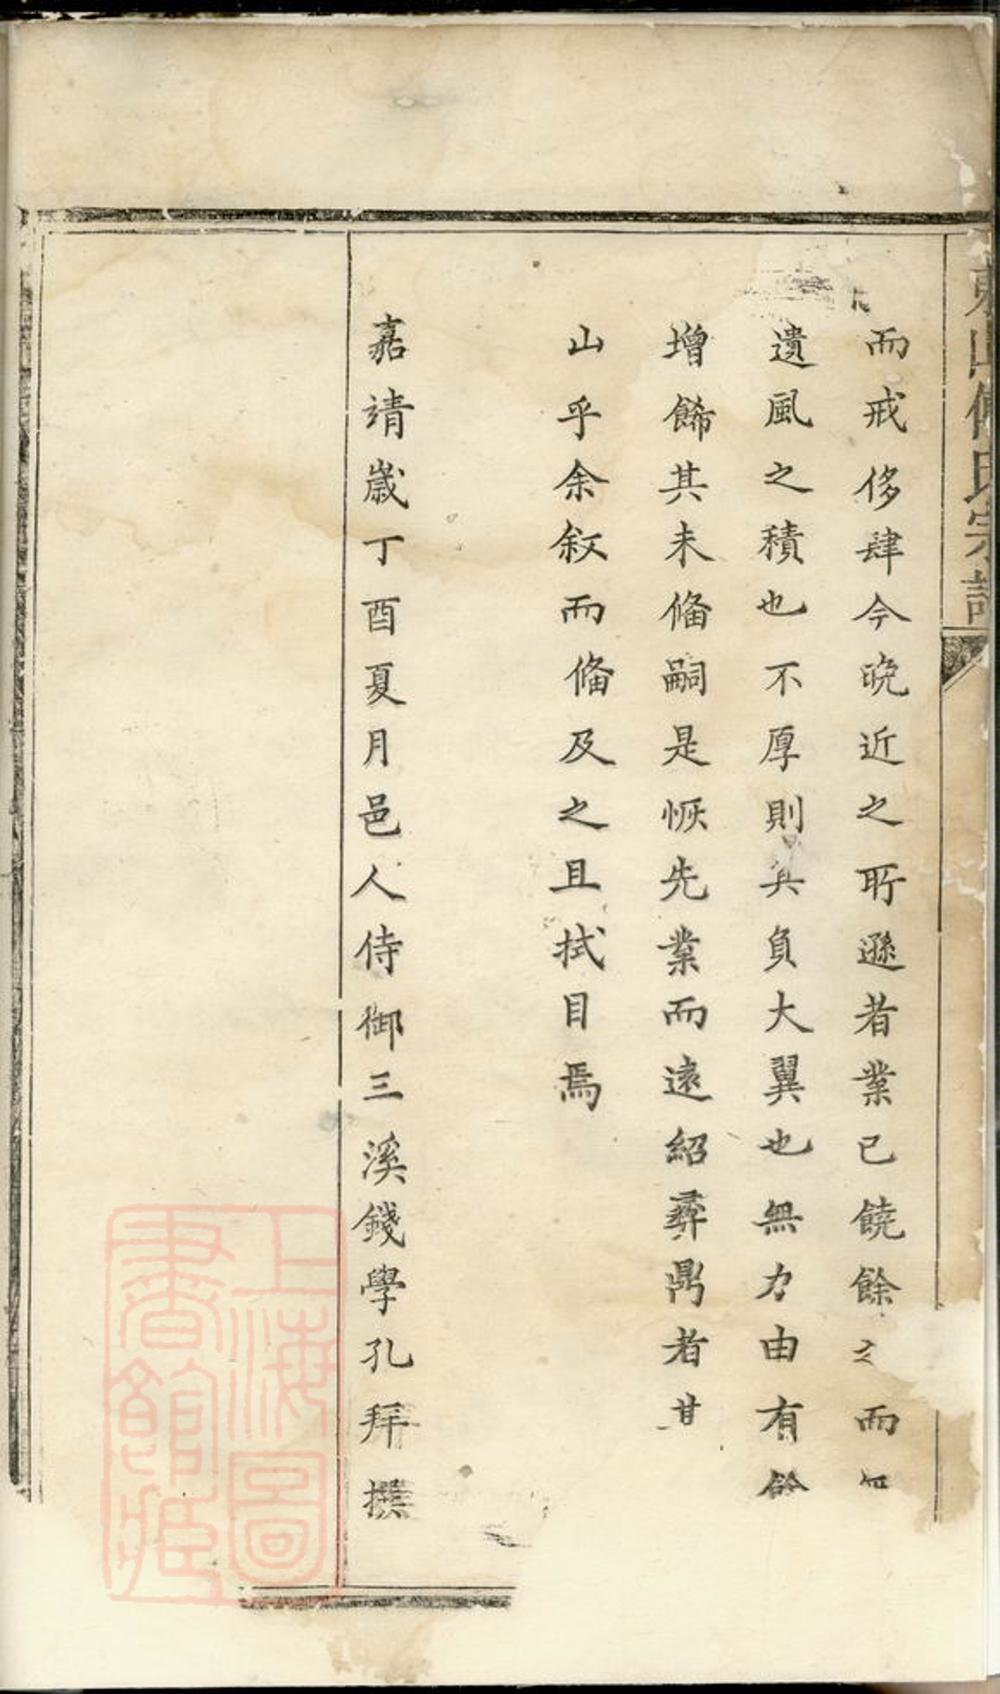 而戒侈肆今晚近之所遜者業已饒餘之而無
遺風之積也不厚則其負大翼也無力由有餘
增飾其未備嗣是恢先業而遠紹彞鼎者甘
山乎余敘而備及之且拭目焉
嘉靖歲丁酉夏月邑人侍御三溪錢學孔拜撰
宗譜
上海圖書館藏